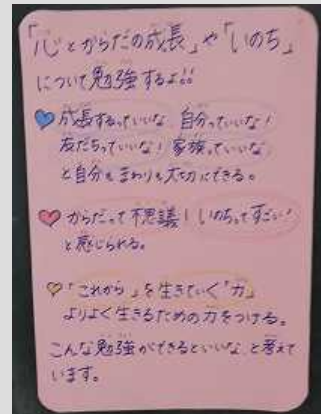 「心とからだの成長」や「いのち」
について勉強するよ!!
成長するっていいな 自分っていいな!
友だちっていいな! 家族っていいな
と自分もまわりも大切にできる。
からだって不思議! いのちってすごい!
と感じられる。
「これから」を生きていく「力」
よりよく生きるための力をつける。
こんな勉強ができるといいな と考えて
います。